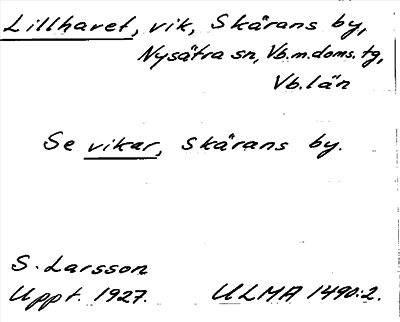 Lillhavet, vik, Skärans by,
Nysätra sn, Vb.m.doms.tg,
Vb.län
Se vikar, Skärans by.
S. Larsson
Uppt. 1927. ULMA 1490:2.